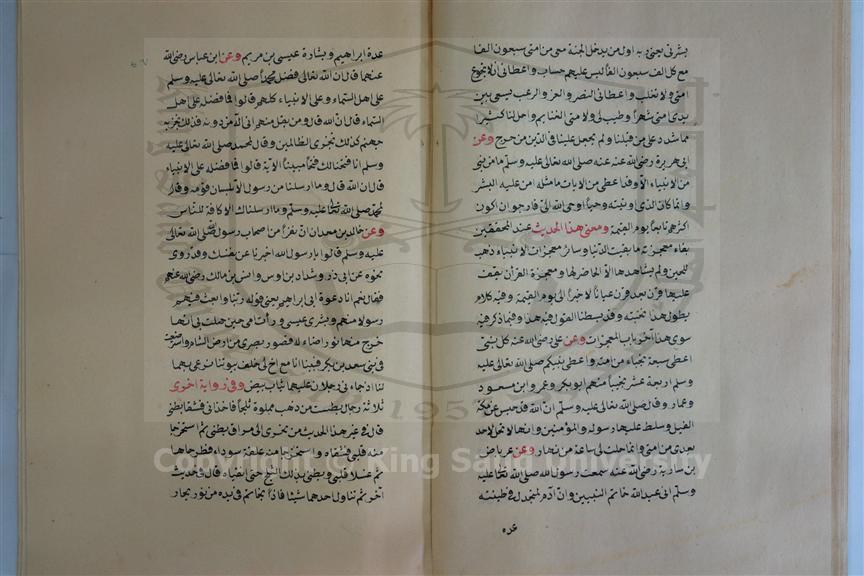 بشرنى يعنى ربه اول من يدخل الجنة معى من امتى سبعون الفا
مع كل الف سبعون الفا ليس عليهم حساب واعطانى ان لا تجوع
امتى ولا تغلب واعطانى النصر والعز والرعب يسعى بين
يدى امتى شهرا وطيب لى ولامتى الغنائم واحل لنا كثيرا
مما شدد على من قبلنا ولم يجعل علينا فى الدين من حرج وعن
ابى هريرة رضى الله عنه عنه صلى الله تعالى عليه وسلم ما من نبى
من الانبياء الا وقد اعطى من الايات ما مثله امن عليه البشر
وانما كان الذى اوتيته وحيا اوحى الله الى فارجو ان اكون
اكثرهم تابعا يوم القيمة ومعنى هذا الحديث عند المحققين
بقاء معجزته ما بقيت الدنيا وسائر معجزات الانبياء ذهب
للحين ولم يشاهدها الا الحاضر لها ومعجزة القرآن يقف
عليها قرن بعد قرن عيانا لا خبرا الى يوم القيمة وفيه كلام
يطول هذا نخبته وقد بسطنا القول فيه هذا وفيما ذكر فيه
سوى هذا آخر باب المعجزات وعن على رضى الله عنه كل نبى
اعطى سبعة نجباء من امته واعطى نبيكم صلى الله تعالى عليه
وسلم اربعة عشر نجيبا منهم ابو بكر وعمر وابن مسعود
وعمار وقال صلى الله تعالى عليه وسلم ان الله قد حبس عن مكة
الفيل وسلط عليها رسوله والمؤمنين وانها لا تحل لاحد
بعدى من امتى وانما احلت لى ساعة من نهار وعن عرباض
بن سارية رضى الله عنه سمعت رسول الله صلى الله تعالى عليه
وسلم انى عبد الله خاتم النبيين وان آدم لمنجدل فى طينته
عده
عدة ابراهيم وبشارة عيسى بن مريم وعن ابن عباس رضى الله
عنهما قال ان الله تعالى فضل محمدا صلى الله تعالى عليه وسلم
على اهل السماء وعلى الانبياء كلهم قالوا فما فضله على اهل
السماء قال ان الله قال ومن يقل منهم انى اله من دونه فذلك نجزيه
جهنم كذلك نجزى الظالمين وقال لمحمد صلى الله تعالى عليه
وسلم انا فتحنا لك فتحا مبينا الآية قالوا فما فضله على الانبياء
قال ان الله قال وما ارسلنا من رسول الا بلسان قومه وقال
لمحمد صلى الله تعالى عليه وسلم وما ارسلناك الا كافة للناس
وعن خالد بن معدان ان نفرا من اصحاب رسول الله صلى الله تعالى
عليه وسلم قالوا يا رسول الله اخبرنا عن نفسك وقد روى
نحوه عن ابى ذر وشداد بن اوس وانس بن مالك رضى الله عنهم
فقال نعم انا دعوة ابى ابراهيم يعنى قوله ربنا وابعث فيهم
رسولا منهم وبشرى عيسى ورأت امى حين حملت بى انها
خرج منها نور اضاء له قصور بصرى من ارض الشام واسترضعت
فى بنى سعد بن بكر فبينا انا مع اخ لى خلف بيوتنا نرعى بهما
لنا اذ جاءنى رجلان عليهما ثياب بيض وفى رواية اخرى
ثلاثة رجال بطست من ذهب مملوة ثلجا فاخذانى فشقا بطنى
قال فى غير هذا الحديث من نحرى الى مراق بطنى ثم استخرجا
منه قلبى فشقاه واستخرجا منه علقة سوداء فطرحاها
ثم غسلا قلبى وبطنى بذلك الثلج حتى انقياه قال فى حديث
آخر ثم تناول احدهما شيئا فاذا بخاتم فى يده من نور يحار
Copyright © King Saud University
1957